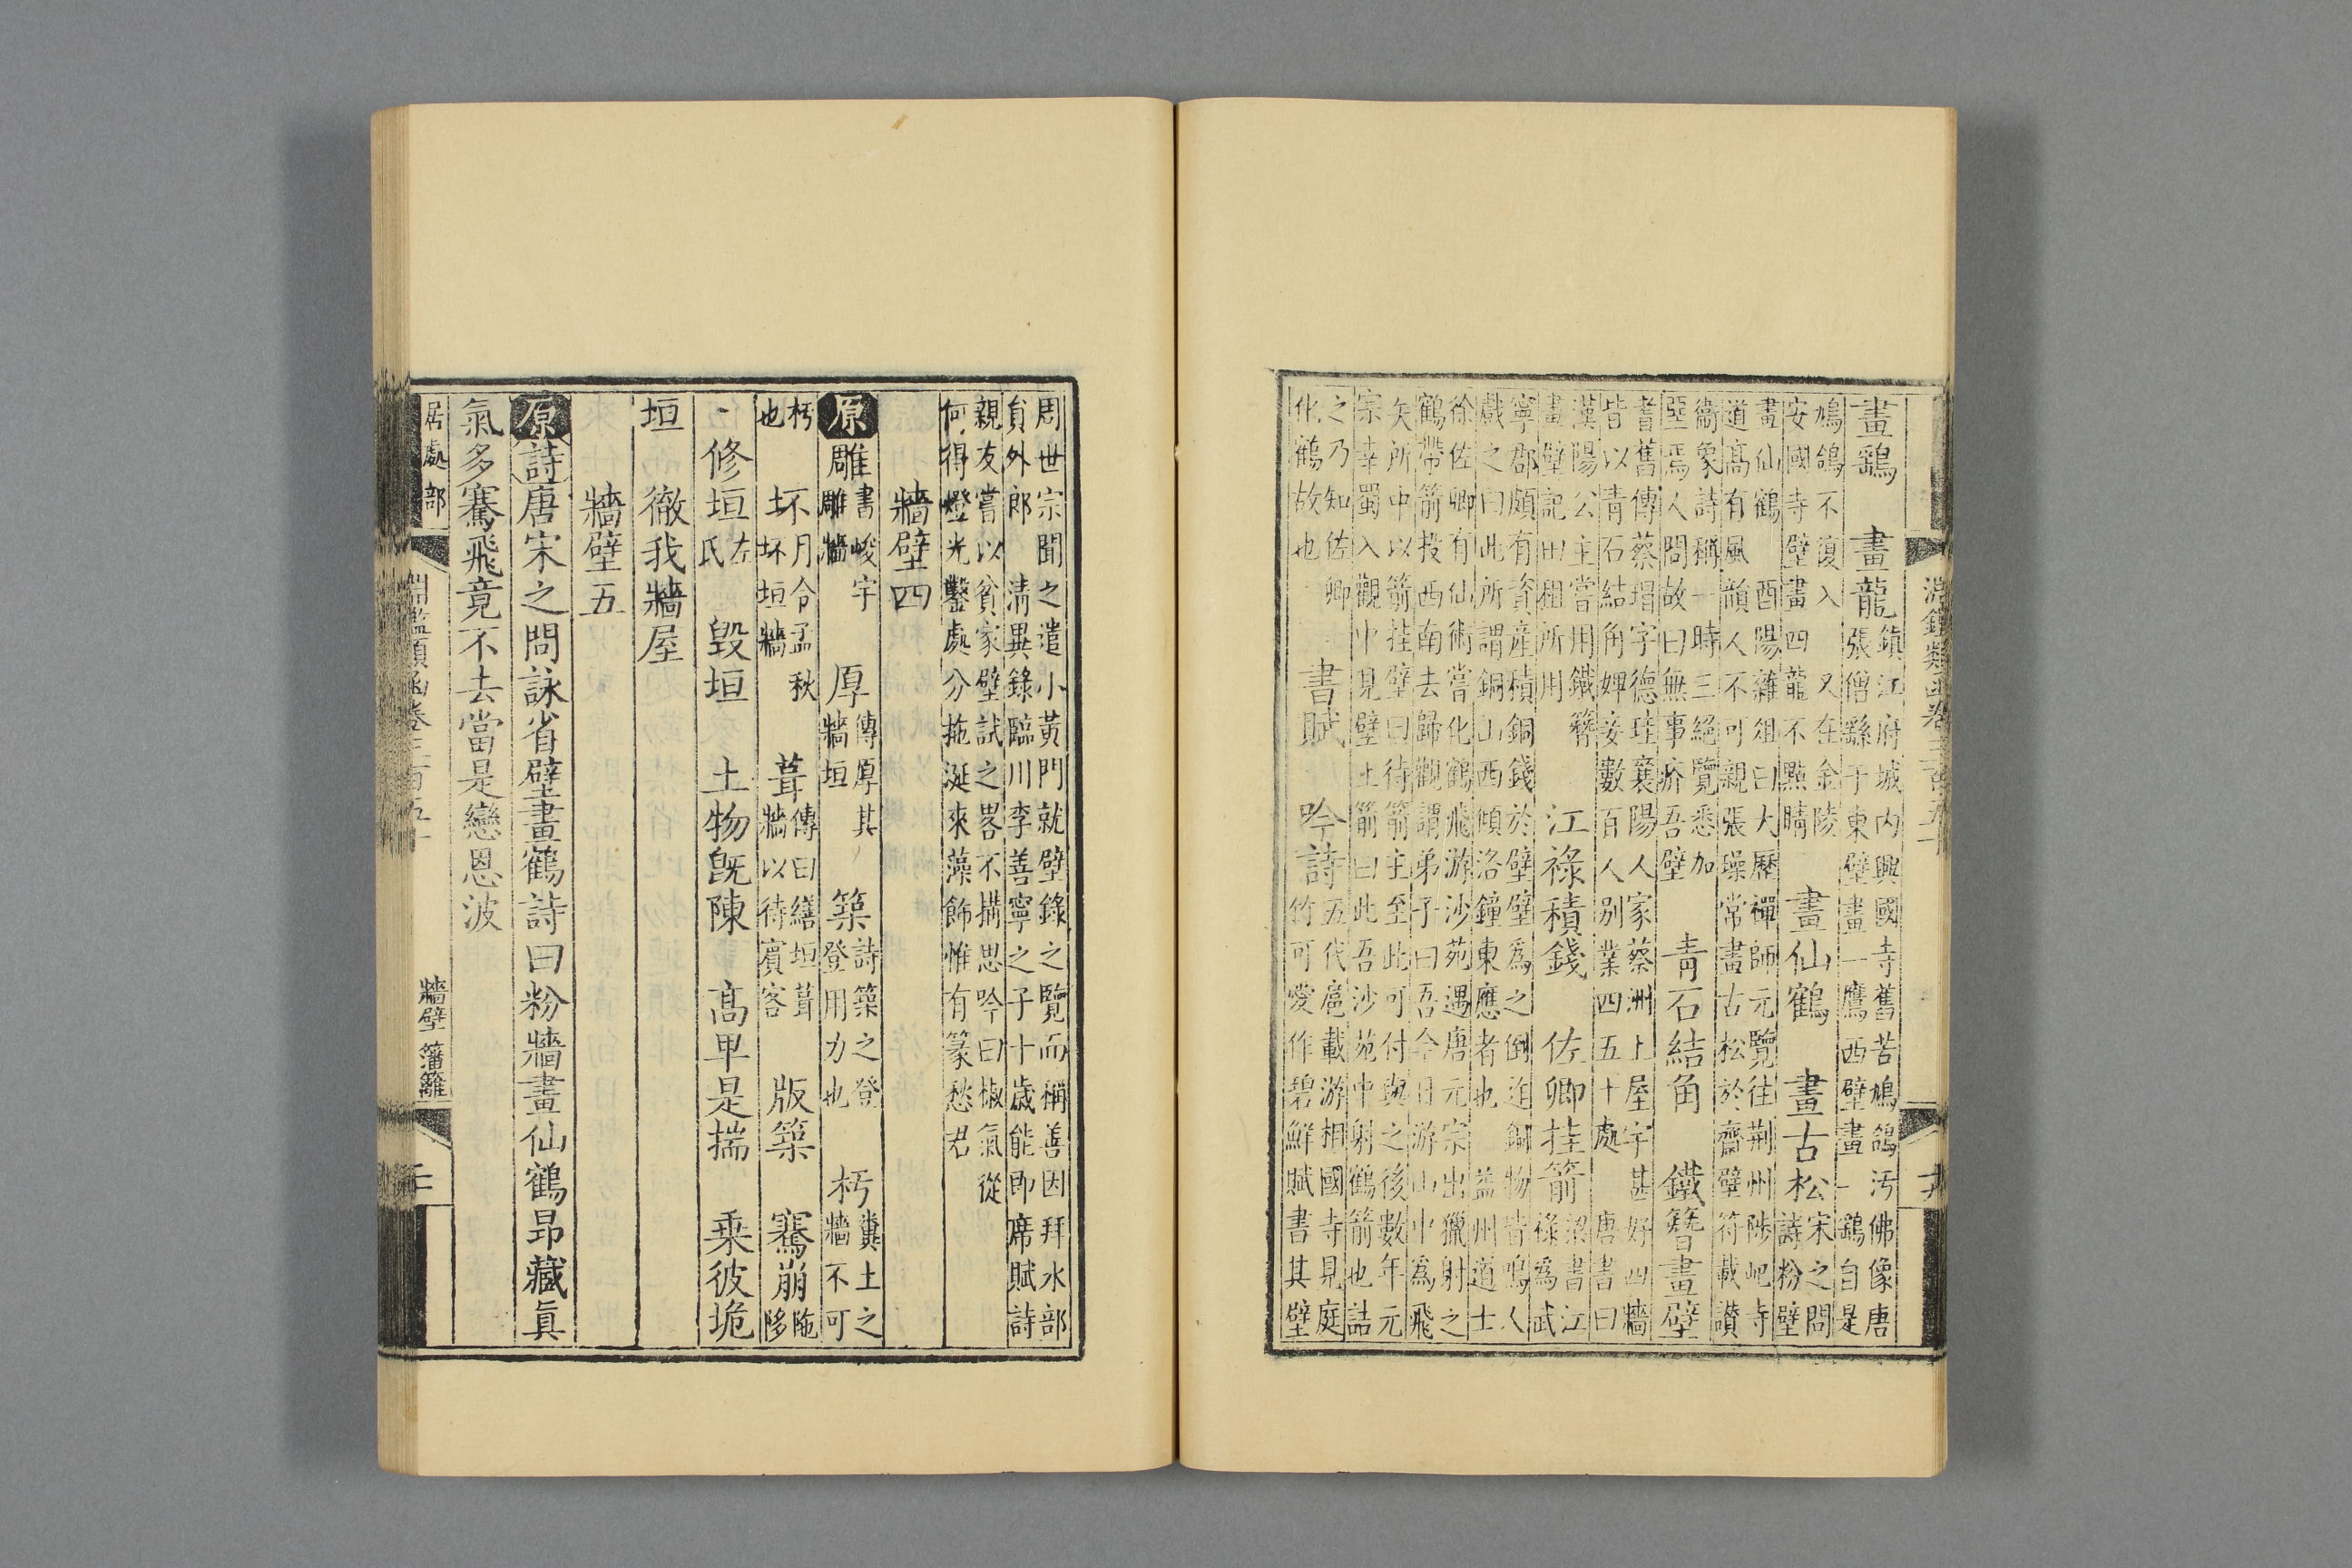 淵鑑類函卷三百五十
畫鷂　畫龍
鎮江府城内興國寺舊苦鳩鴿汚佛像唐
張僧繇于東壁畫一鷹西壁畫一鷂自是
鳩鴿不復入　又在金陵
安國寺壁畫四龍不點睛
畫仙鶴　畫古松
宋之問
詩粉壁
畫仙鶴　酉陽雜俎曰大歷禪師元覽往荆州陟屺寺
道高有風韻人不可親張璪常畫古松於齋壁符載讃
衞象詩稱一時三絕覽悉加
堊焉人問故曰無事疥吾壁
青石結角　鐵簪畫壁
耆舊傳蔡瑁字德珪襄陽人家蔡洲上屋宇甚好四牆
皆以青石結角婢妾數百人别業四五十處　唐書曰
漢陽公主嘗用鐵簪
畫壁記田租所用
江祿積錢　佐卿挂箭
梁書江
祿為武
寧郡頗有資産積銅錢於壁壁為之倒迮銅物皆鳴人
戲之曰此所謂銅山西傾洛鐘東應者也　益州道士
徐佐卿有仙術嘗化鶴飛游沙苑遇唐元宗出獵射之
鶴帶箭投西南去歸觀謂弟子曰吾今日游山中為飛
矢所中以箭挂壁曰待箭主至此可付與之後數年元
宗幸蜀入觀中見壁上箭曰此吾沙苑中射鶴箭也詰
之乃知佐卿
化鶴故也
書賦　吟詩
五代扈載游相國寺見庭
竹可愛作碧鮮賦書其壁
周世宗聞之遣小黄門就壁錄之覽而稱善因拜水部
員外郎　清異錄臨川李善寧之子十歲能即席賦詩
親友嘗以貧家壁試之畧不搆思吟曰椒氣從
何得燈光鑿處分拖涎來藻飾惟有篆愁君
牆壁四
原雕
書峻宇
雕牆
厚
傳厚其
牆垣
築
詩築之登
登用力也
杇
糞土之
牆不可
杇
也
坏
月令孟秋
坏垣牆
葺
傳曰繕垣葺
牆以待賓客
版築　騫崩
陁
陊
修垣
左
氏
毁垣　土物旣陳　高卑是揣　乘彼垝
垣　徹我牆屋
牆壁五
原詩唐宋之問詠省壁畫鶴詩曰粉牆畫仙鶴昂藏眞
氣多騫飛竟不去當是戀恩波
居處部
淵鑑類函卷三百五十
牆壁　籓籬